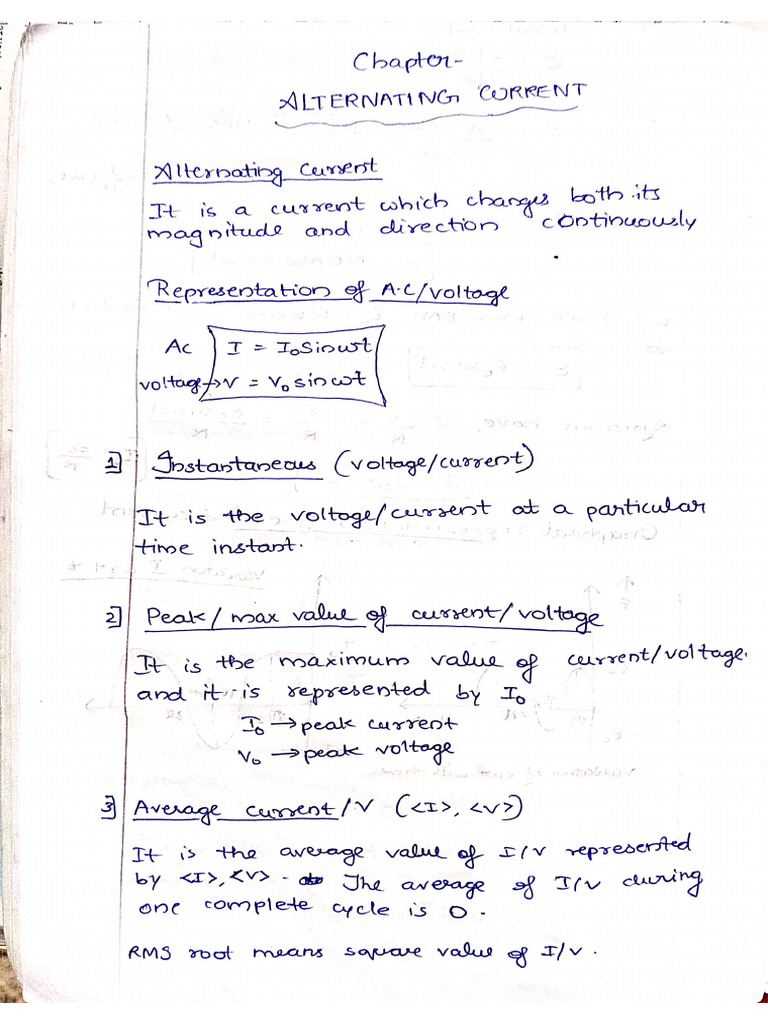 Chapter-
ALTERNATING CURRENT
Alternating Current
It is a current which changes both its
magnitude and direction continuously
Representation of A.C/voltage
AC I = I₀sinωt
voltage→V = V₀sinωt
1] Instantaneous (voltage/current)
It is the voltage/current at a particular
time instant.
2] Peak/max value of current/voltage
It is the maximum value of current/voltage.
and it is represented by I₀
I₀ →peak current
V₀ →peak voltage
3] Average current/V (<I>, <V>)
It is the average value of I/V represented
by <I>, <V> - The average of I/V during
one complete cycle is 0.
RMS root means square value of I/V.